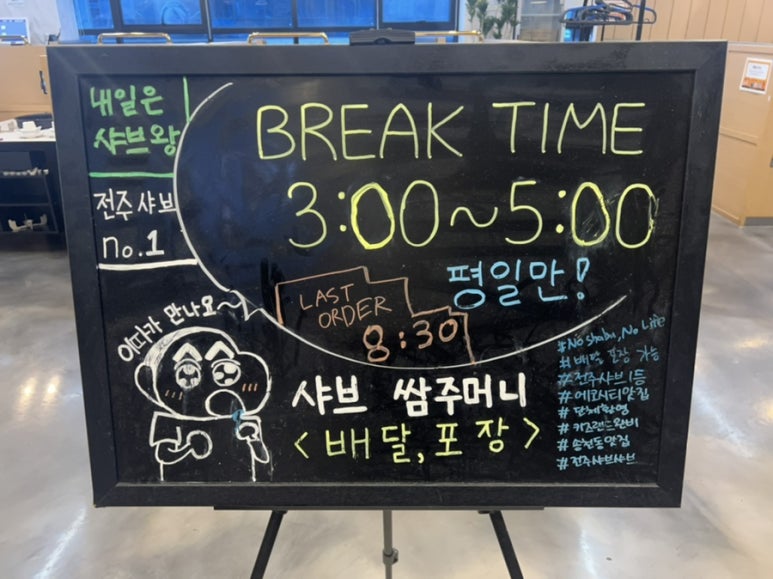 내일은
샤브왕
BREAK TIME
전주샤브
no.1
3:00~5:00
평일만!
LAST
ORDER
8:30
이따가 만나요~
샤브 쌈주머니
<배달,포장>
#No shabu, No Life
#배달, 포장 가능
#전주샤브1등
#에코시티맛집
#단체환영
#키즈랜드완비
#송천동맛집
#전주샤브샤브